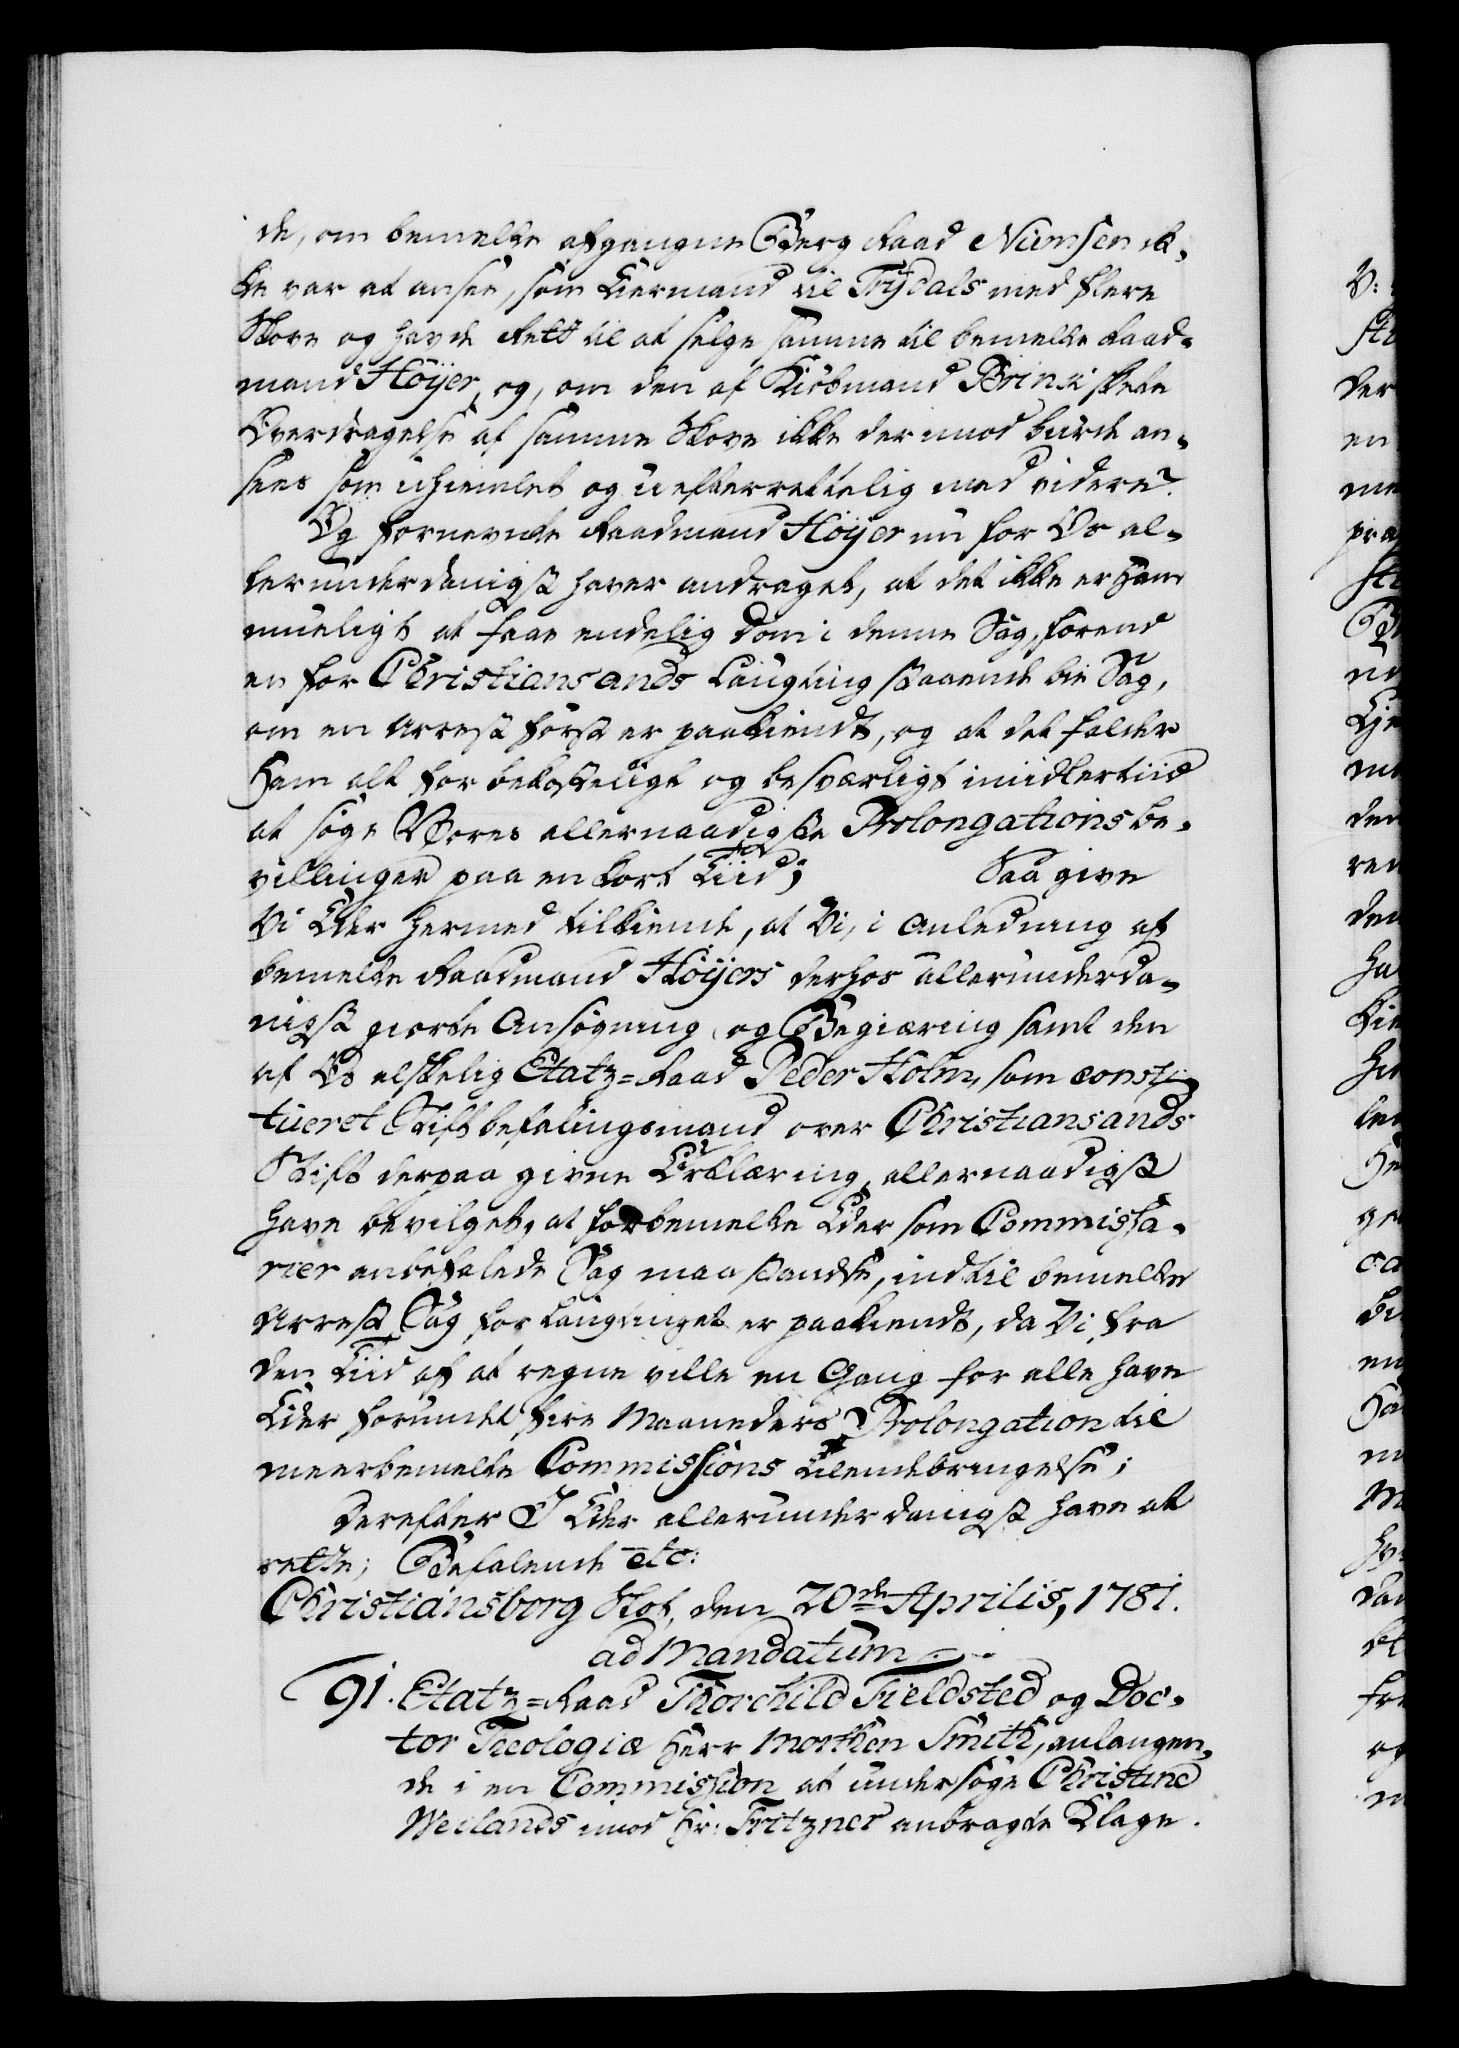 de, om bemelte afgangne Berg Raad Numsen ik-
ke var at ansee, som Eiermand til Trydals med flere
Skove og havde Rett til at selge samme til bemelte Raad-
mand Höyer, og, om den af Kiöbmand Brink skete
Overdragelse af samme Skove ikke derimod burde an-
sees som uhiemlet og uefterrettelig med videre.
Og fornevnte Raadmand Höyer nu for Os al-
lerunderdanigst haver andraget, at det ikke er ham
mueligt at faae endelig Dom i denne Sag, förend
en for Christiansands Laugting staaende bie Sag,
om en Arrest först er paakiendt, og at det falder
ham alt for bekosteligt og besværligt imidlertiid
at söge Vores allernaadigste Prolongations be-
villinger paa en kort Tiid; Saa give
Vi Eder hermed tilkiende, at Vi, i Anledning af
bemelte Raadmand Höyers derhos allerunderda-
nigst giorte Ansögning og Begiæring samt den
af Os elskelig Etatz-Raad Peder Holm, som consti-
tueret Stiftbefalingsmand over Christiansands
Stift derpaa givne Erklæring, allernaadigst
have bevilget, at forbemelte Eder som Commissa-
rier anbefalede Sag maa standse, indtil bemelte
Arrest Sag for Laugtinget er paakiendt, da Vi, fra
den Tiid af at regne ville en Gang for alle have
Eder forundt fire Maaneders Prolongation til
meerbemelte Commissions Tilendebringelse;
Derefter I Eder allerunderdanigst have at
rette; Befalende etc:
Christiansborg Slot, den 20de Aprilis, 1781.
ad Mandatum
91. Etatz-Raad Thorchild Fieldsted og Doc-
tor Theologiæ Herr Morthen Smith, anlangen-
de i en Commission at undersöge Christine
Weilands imod Hr: Fritzner anbragte Klage.
V:
der
en
me
pra
den
ren
den
ha
ge
en
og